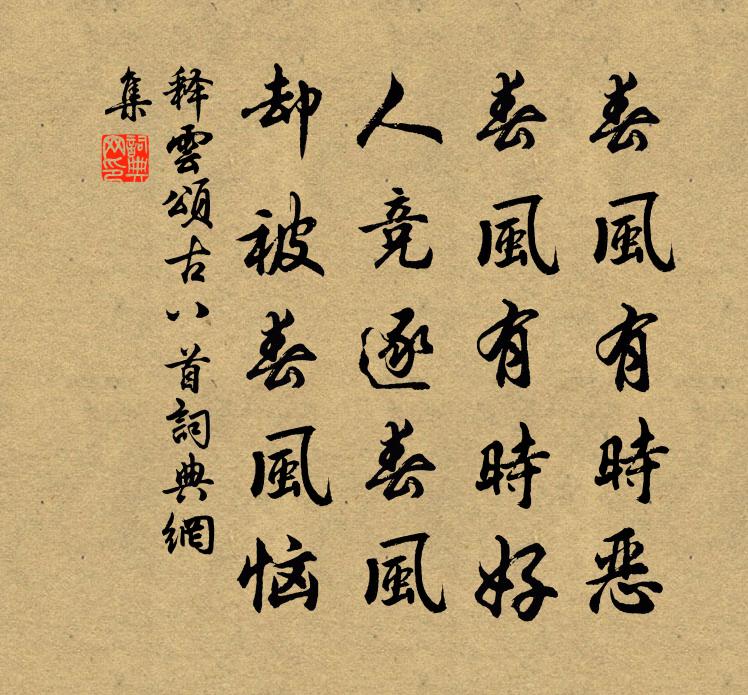 春風有時惡
春風有時好
人竞逐春風
却被春風恼
释雲頌古八首詞典網
集
詞典
网印